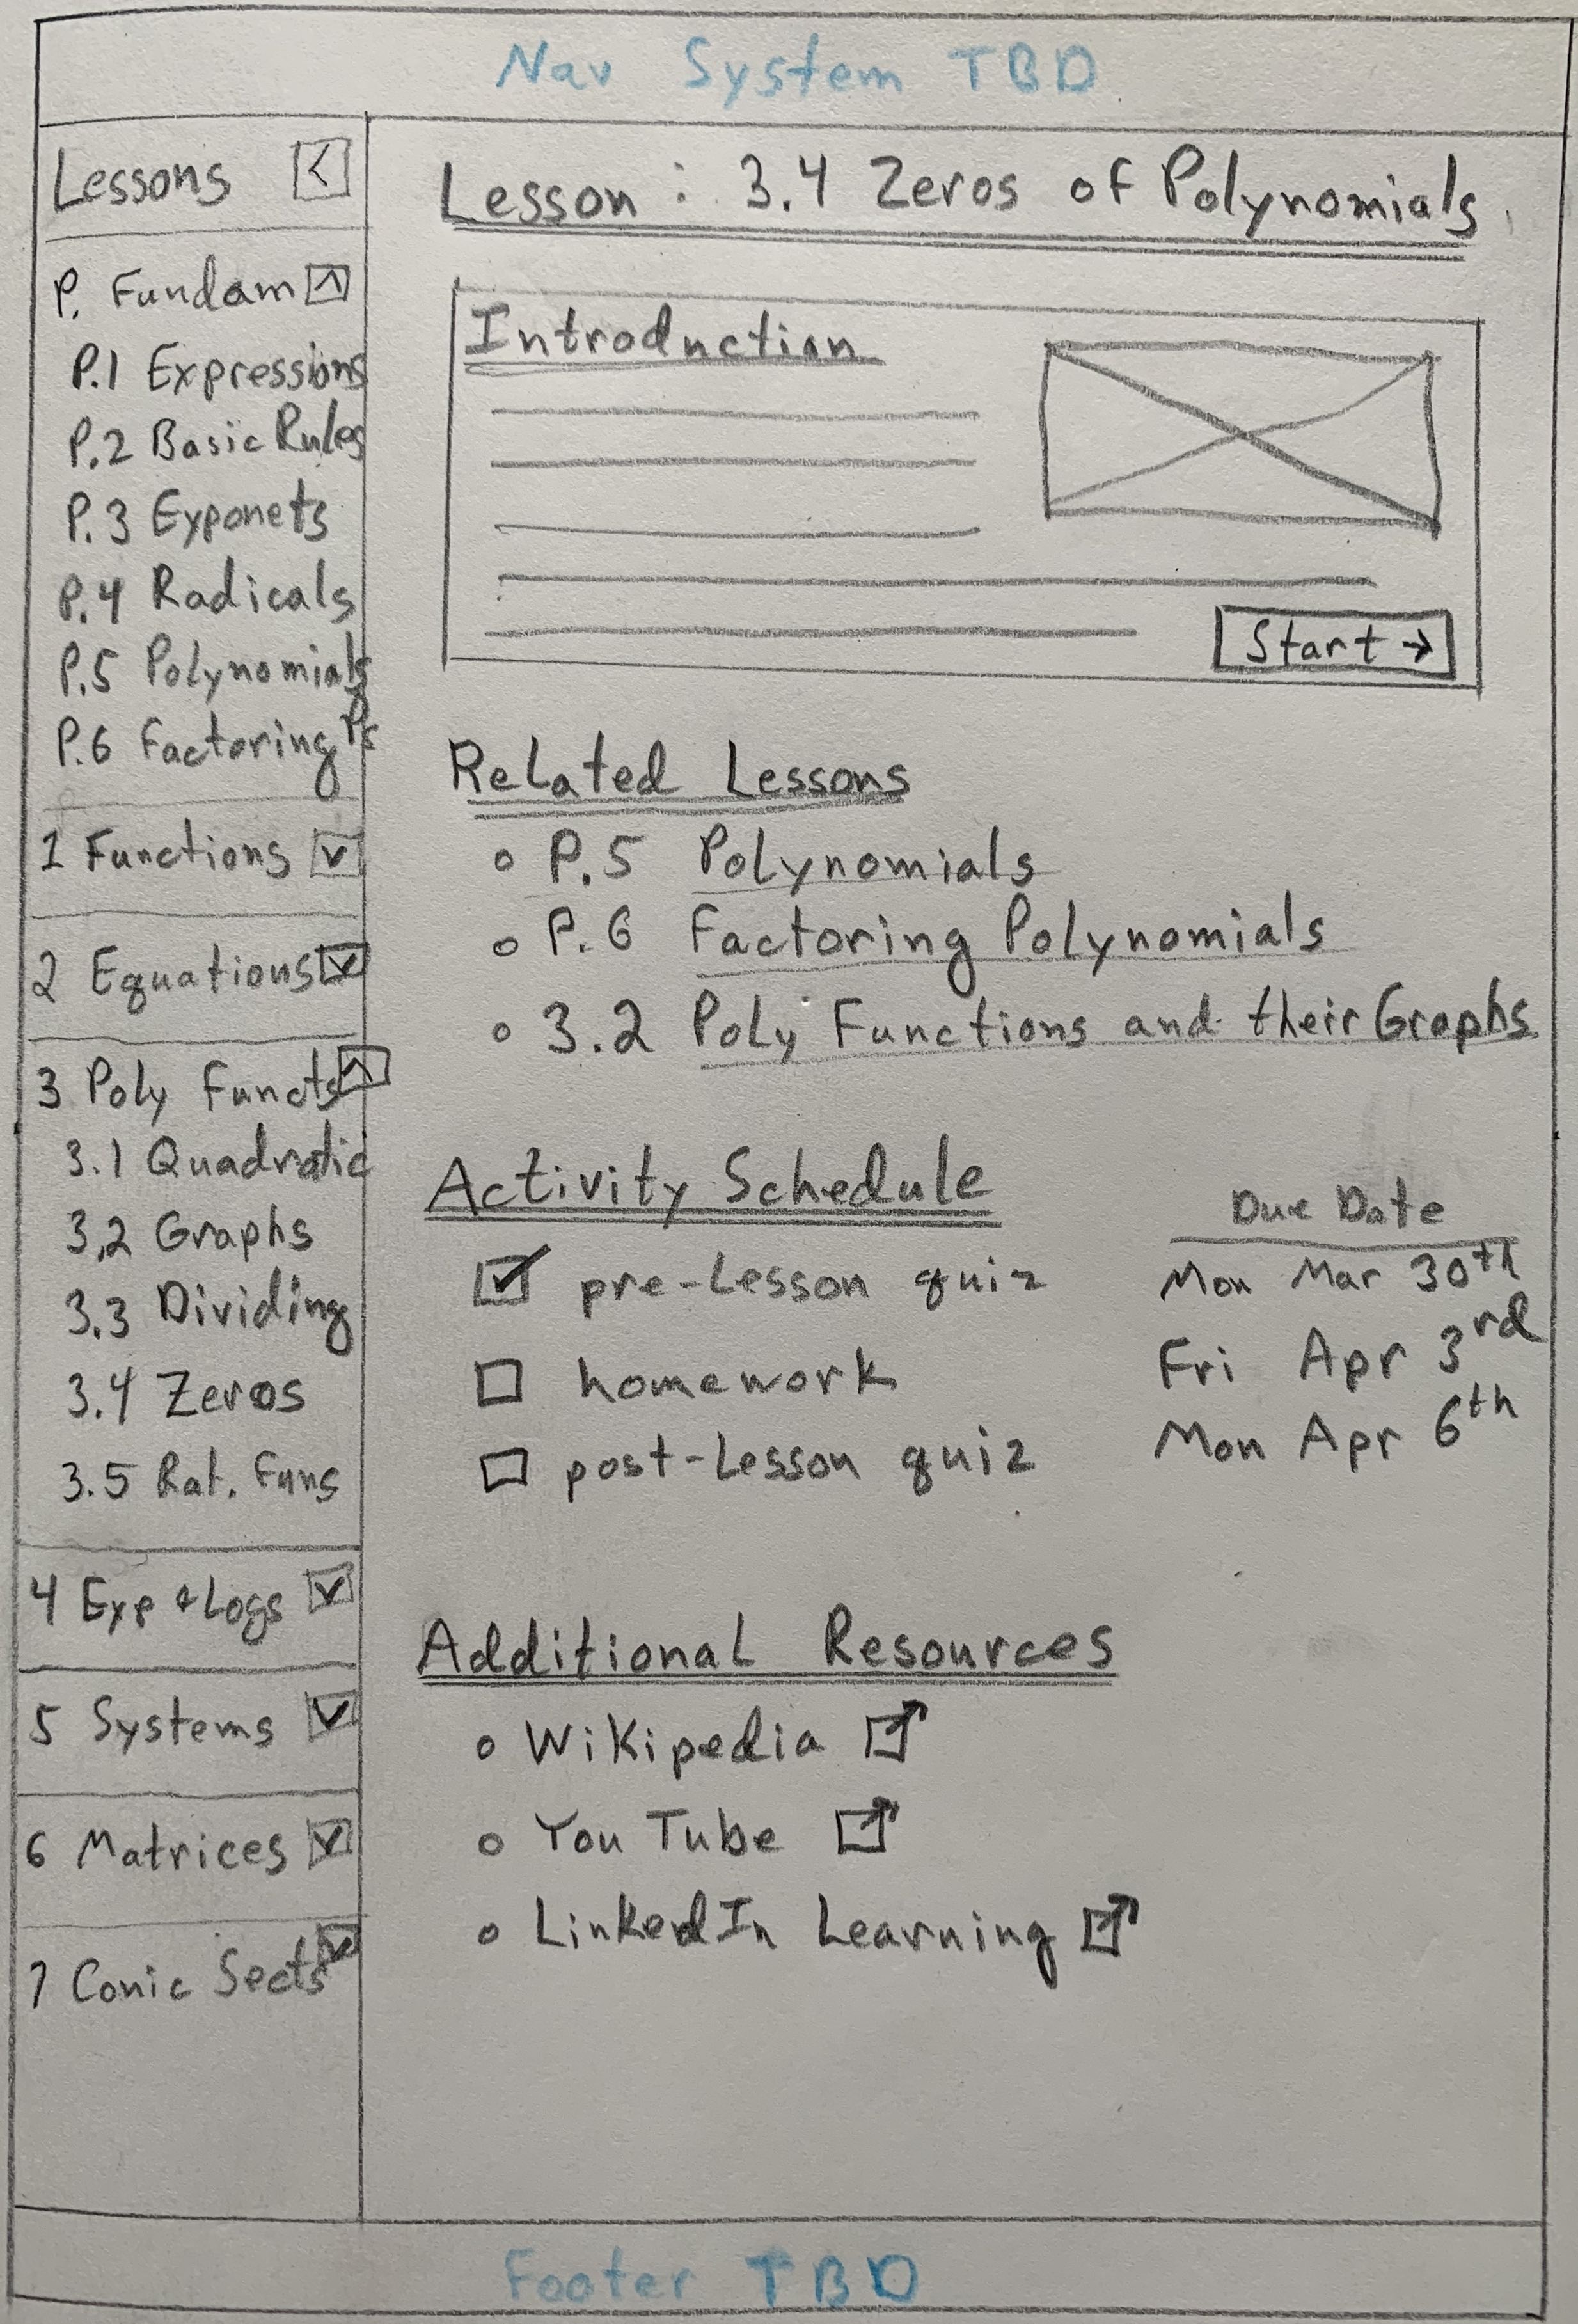 Nav System TBD
Lessons <
P. Fundam ^
P.1 Expressions
P.2 Basic Rules
P.3 Exponets
P.4 Radicals
P.5 Polynomials
P.6 Factoring Ps
1 Functions v
2 Equations v
3 Poly Functs ^
3.1 Quadratic
3.2 Graphs
3.3 Dividing
3.4 Zeros
3.5 Rat. Funs
4 Exp + Logs v
5 Systems v
6 Matrices v
7 Conic Sects v
Lesson: 3.4 Zeros of Polynomials
Introduction
Start →
Related Lessons
P.5 Polynomials
P.6 Factoring Polynomials
3.2 Poly Functions and their Graphs
Activity Schedule Due Date
pre-Lesson quiz Mon Mar 30th
homework Fri Apr 3rd
post-Lesson quiz Mon Apr 6th
Additional Resources
Wikipedia
YouTube
LinkedIn Learning
Footer TBD